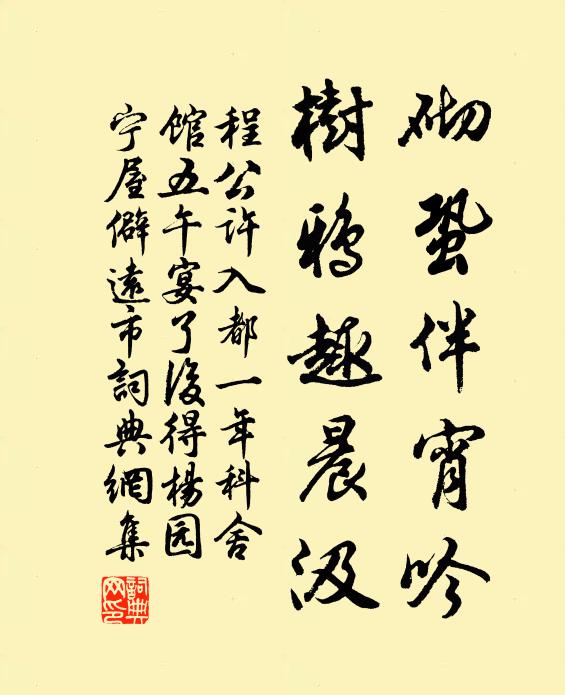 砌蛩伴宵吟
樹鴉趣晨汲
程公许入都一年科舍
馆五午宴了後得杨园
宁屋僻遠市詞典網集
詞典網印